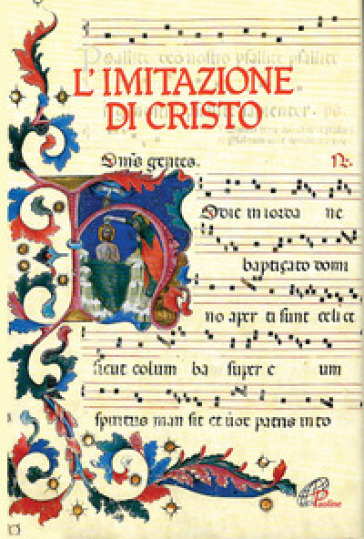 Psallite deo nostro psallite psallite
L'IMITAZIONE
DI CRISTO
Om̄s gentes.
Hodie in iorda ne
baptiçato domi
no aper ti sunt celi et
sicut colum ba super e um
spiritus man sit et uox patris in to
Paoline